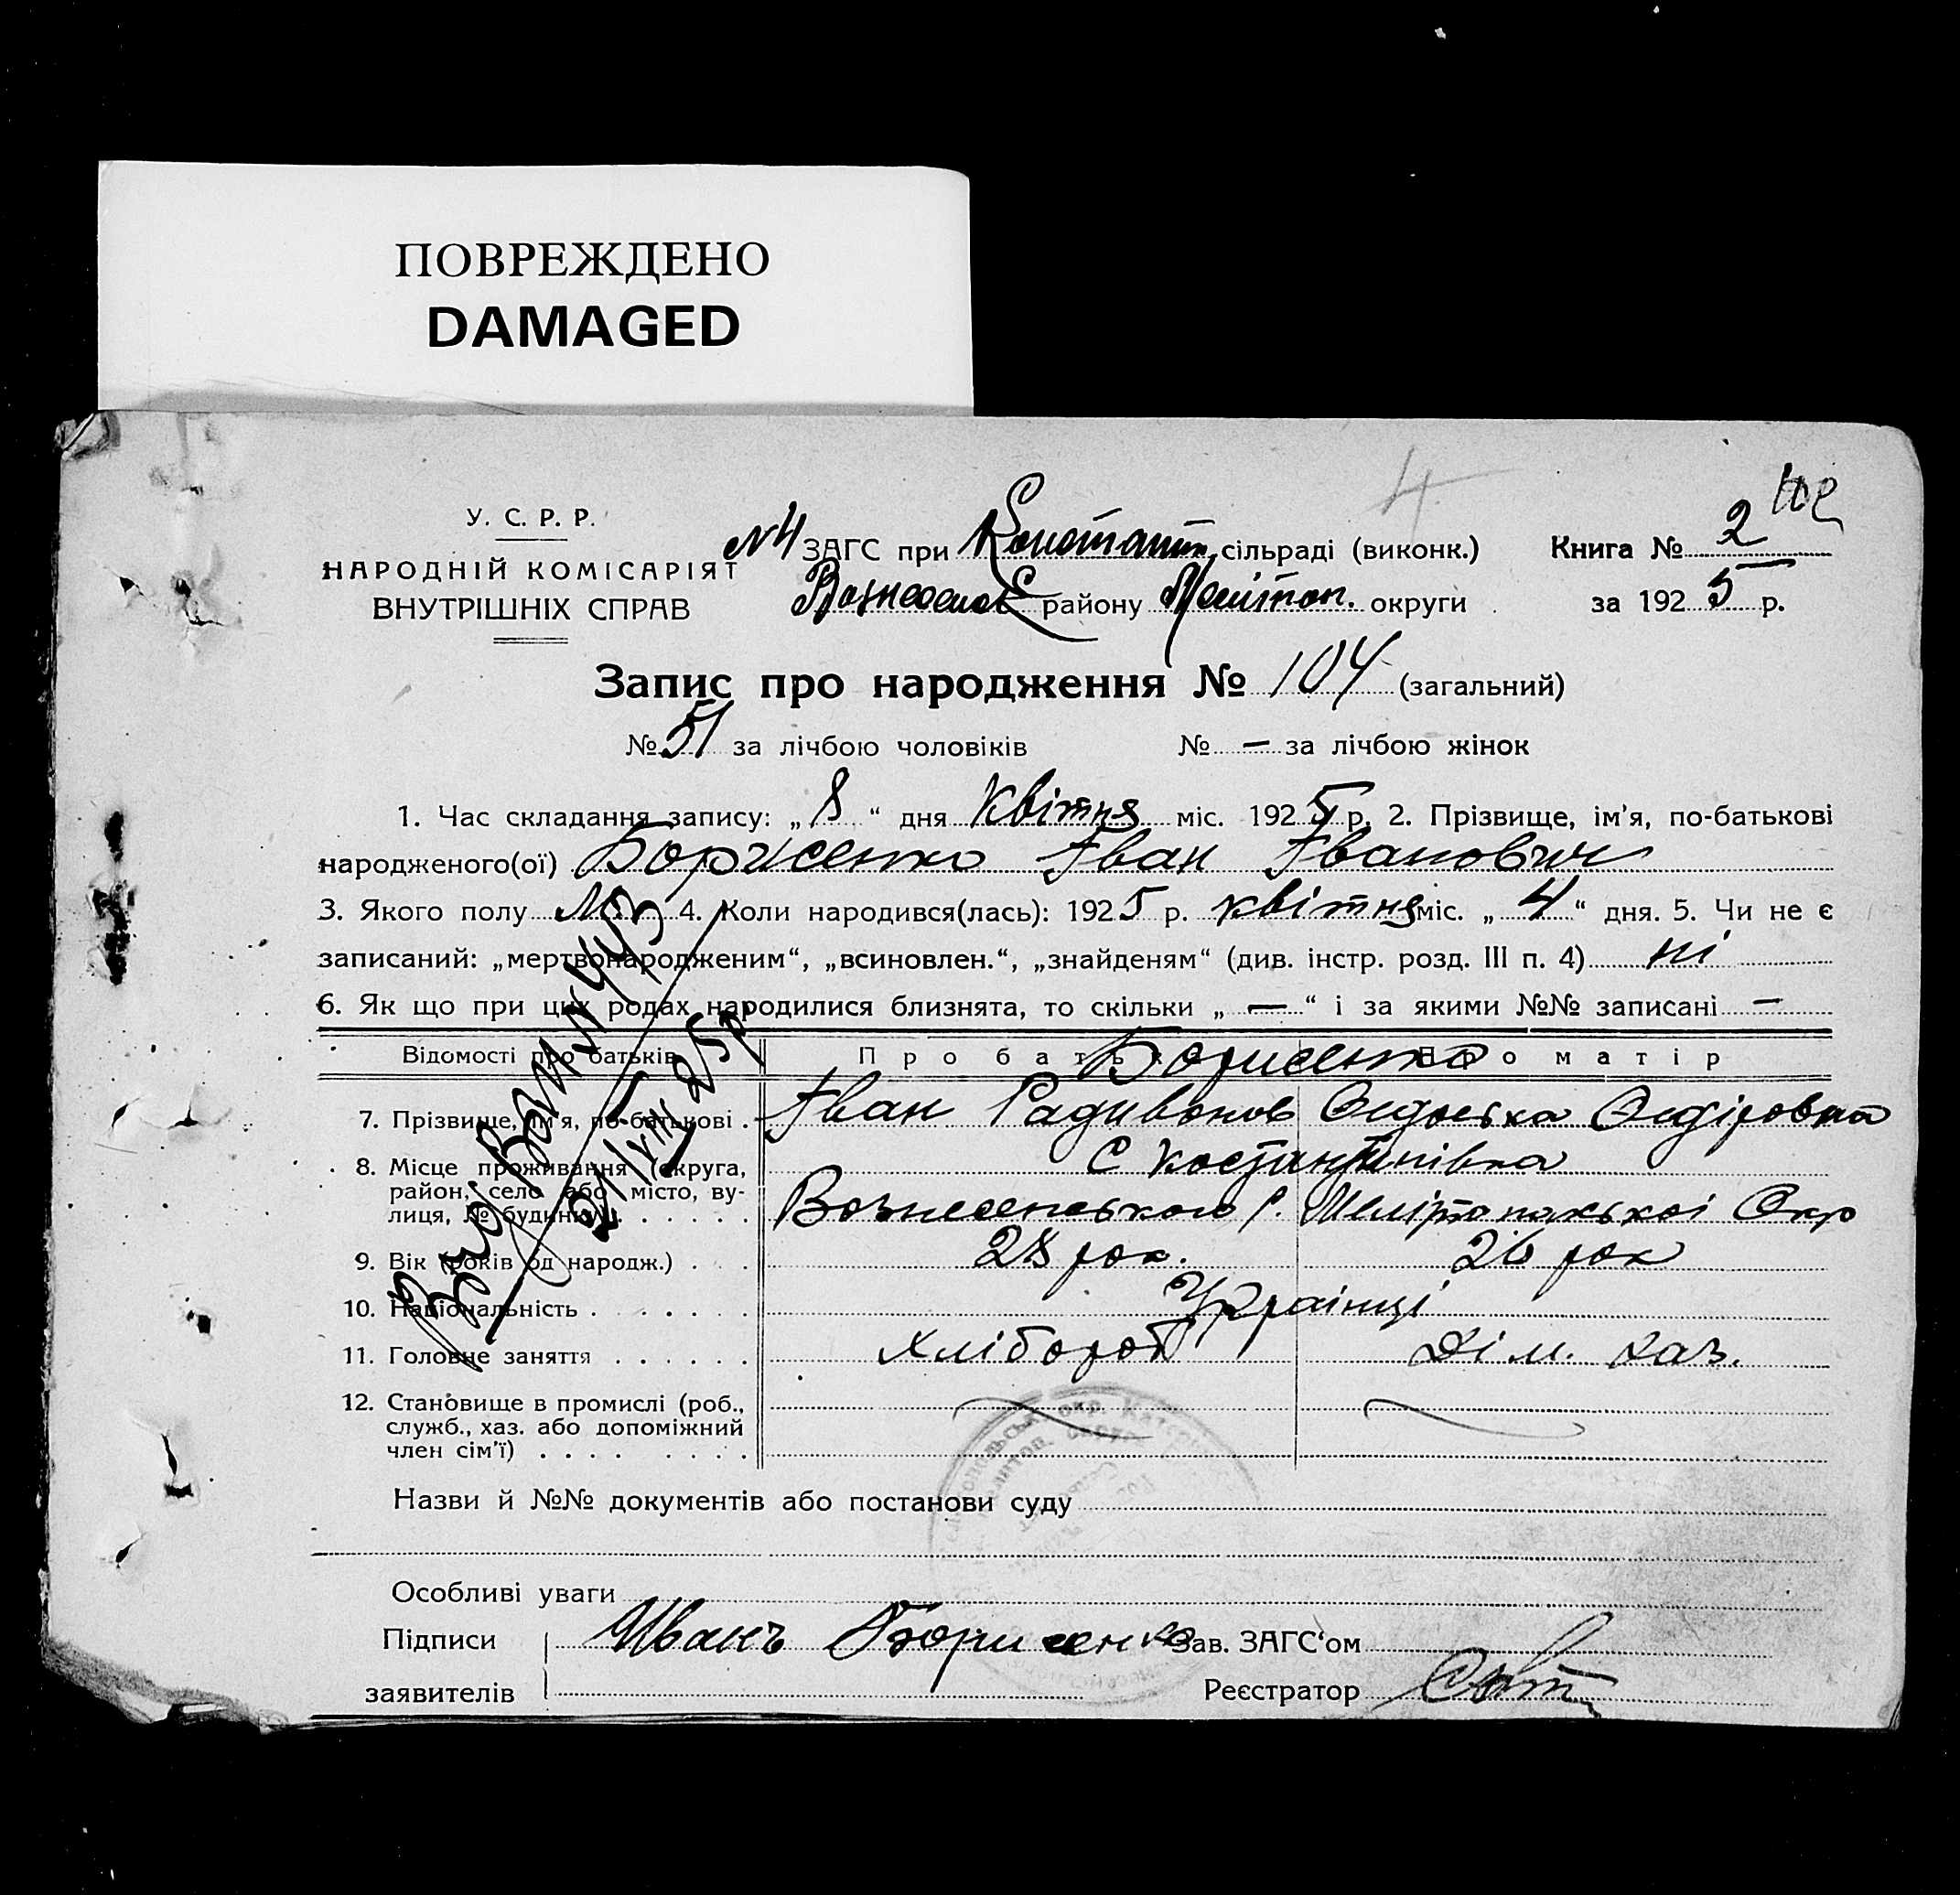 ПОВРЕЖДЕНО
DAMAGED
4
У. С. Р. Р.
НАРОДНІЙ КОМІСАРІЯТ
ВНУТРІШНІХ СПРАВ
№4 ЗАГС при Констант. сільраді (виконк.) Книга № 2
району Мелітоп. округи за 1925 р.
Запис про народження № 104 (загальний)
№ 51 за лічбою чоловіків № — за лічбою жінок
1. Час складання запису: „ 8 “ дня Квітня міс. 1925 р. 2. Прізвище, ім'я, по-батькові
народженого(ої) Борисенко Іван Іванович
3. Якого полу М 4. Коли народився(лась): 1925 р. квітня міс. „ 4 “ дня. 5. Чи не є
записаний: „мертвонародженим“, „всиновлен.“, „знайденям“ (див. інстр. розд. III п. 4) ні
6. Як що при цих родах народилися близнята, то скільки „ — “ і за якими №№ записані —
Відомості про батьків Про батька Про матір
Борисенко
7. Прізвище, ім'я, по-батькові . Іван Радивонов Федоська Федіровна
8. Місце проживання (округа, район, село або місто, вулиця, № будинку)
С Костянтинівка
Вознесенського р. Мелітопольскої Окр
9. Вік (років од народж.) . . . 28 рок. 26 рок
10. Національність . . . . . . Українці
11. Головне заняття . . . . . . хлібороб дім. хаз.
12. Становище в промислі (роб.,
служб., хаз. або допоміжний
член сім'ї) . . . . . . . .
Назви й №№ документів або постанови суду
Особливі уваги
Підписи Иванъ Борисенко Зав. ЗАГС'ом
заявителів Реєстратор